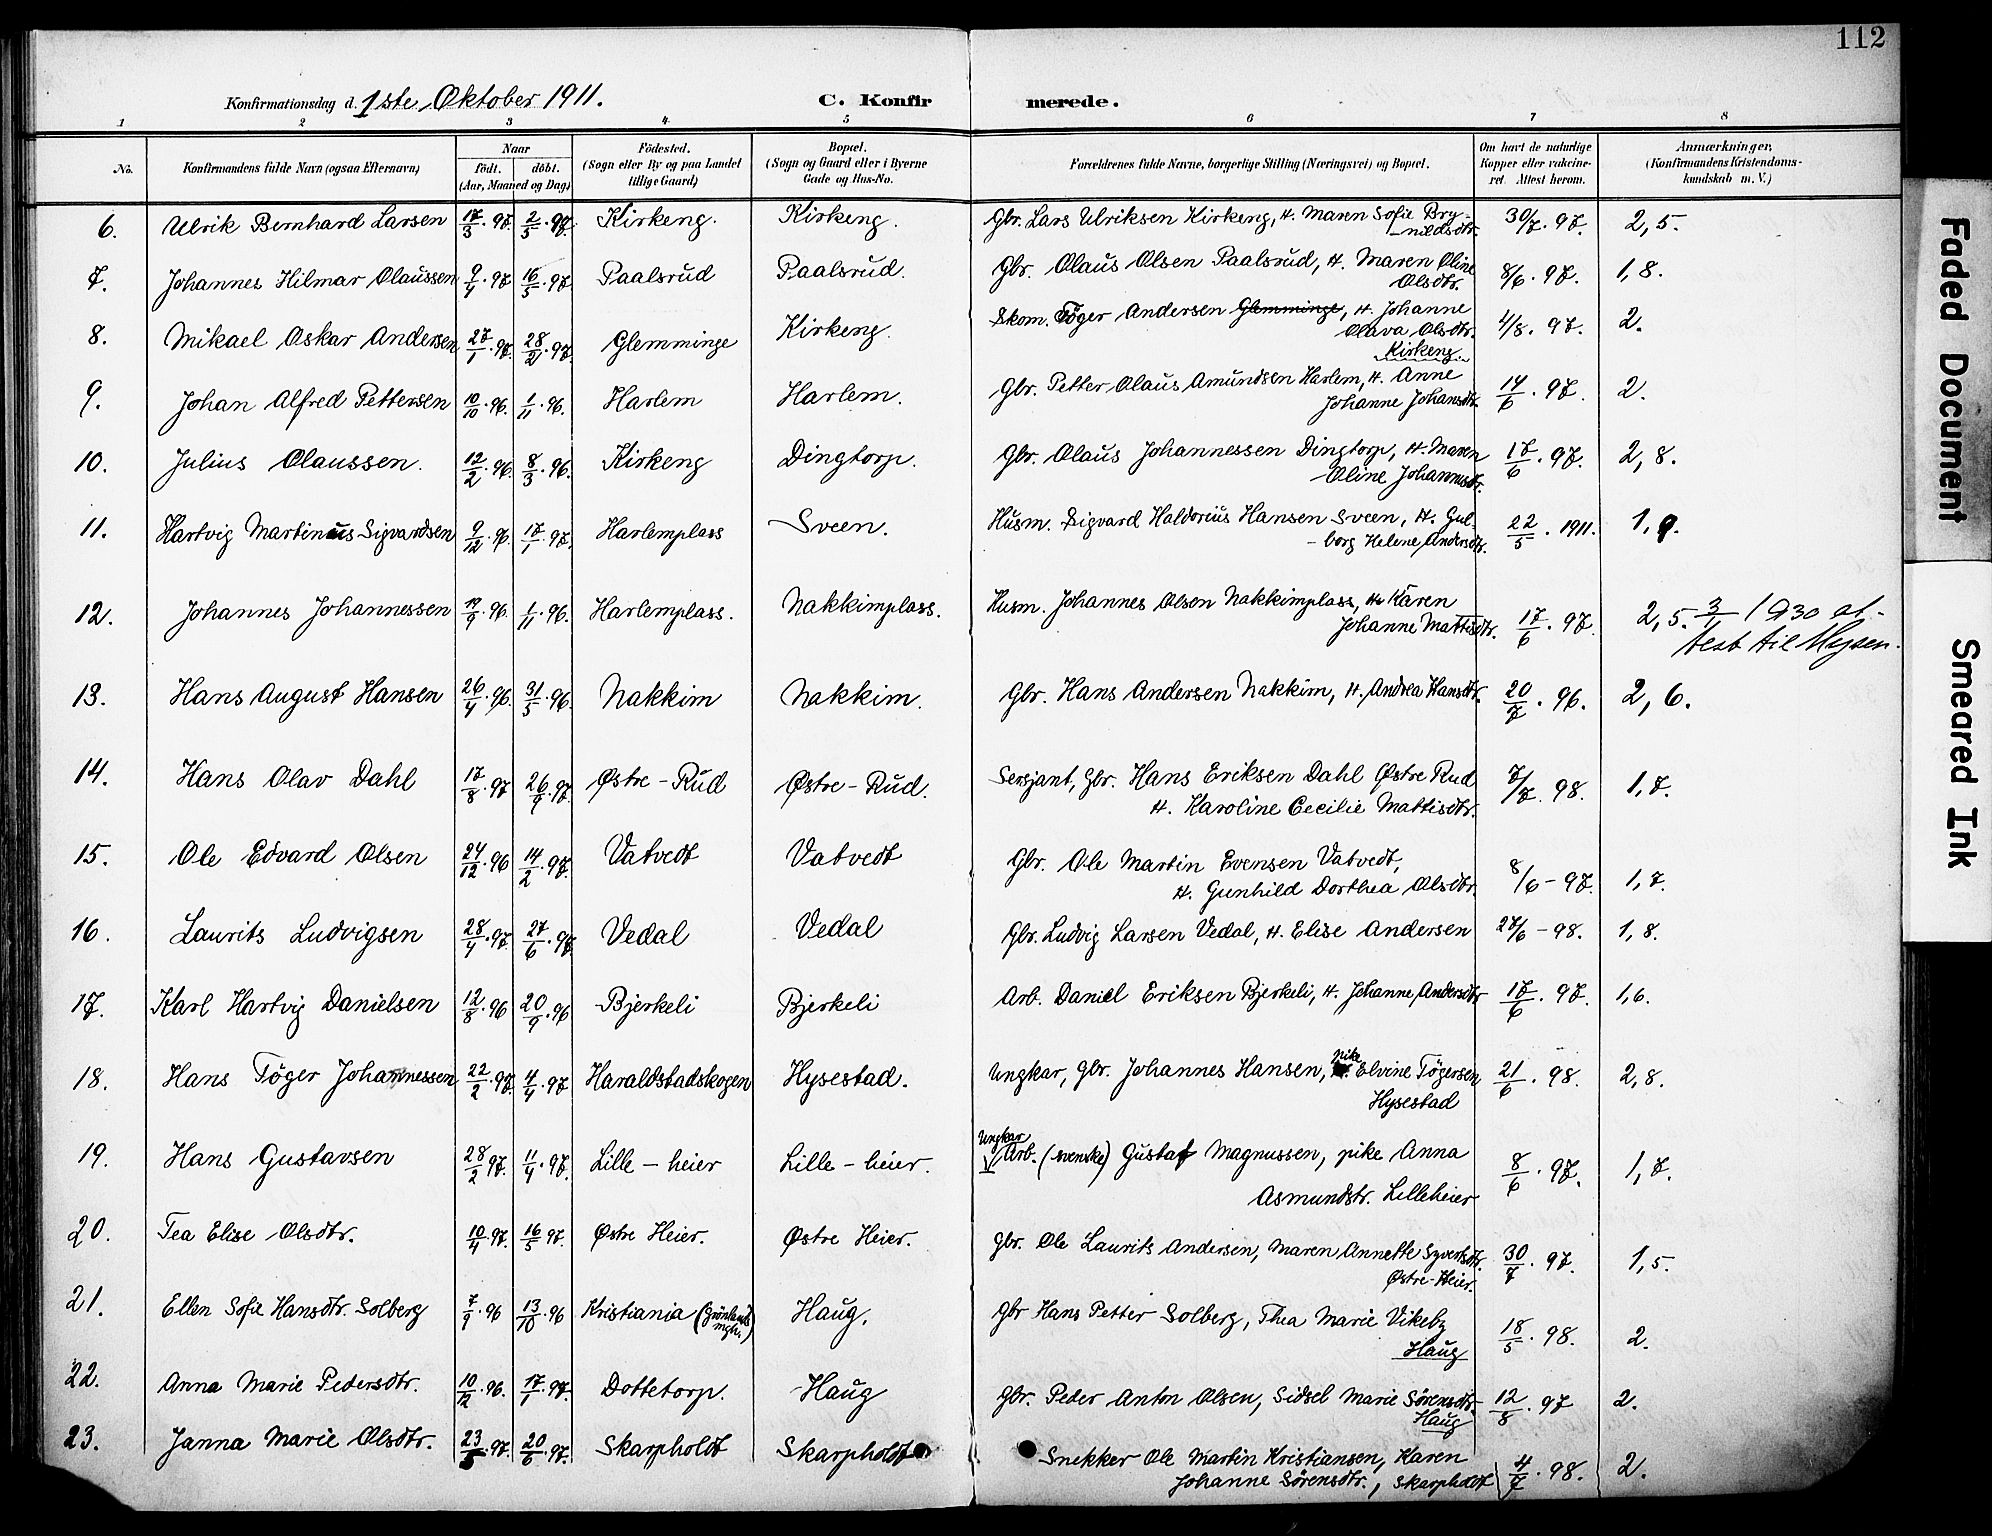 112
Konfirmationsdag d. 1ste Oktober 1911. C. Konfirmerede.
1 2 3 4 5 6 7 8
No. Konfirmandens fulde Navn (ogsaa Efternavn) Naar født. døbt. (Aar, Maaned og Dag) Fødested. (Sogn eller By og paa Landet tillige Gaard) Bopæl. (Sogn og Gaard eller i Byerne Gade og Hus-No. Forældrenes fulde Navne, borgerlige Stilling (Næringsvei) og Bopæl. Om havt de naturlige Kopper eller vakcineret. Attest herom. Anmærkninger, (Konfirmandens Kristendomskundskab m. V.)
6. Ulrik Bernhard Larsen 17/3. 97. 2/5. 97. Kirkeng. Kirkeng. Gbr. Lars Ulriksen Kirkeng, H. Maren Sofie Bry-
-nildsdtr. 30/7. 97. 2,5.
7. Johannes Hilmar Olaussen 9/4. 97 16/5. 97. Paalsrud Paalsrud. Gbr. Olaus Olsen Paalsrud, H. Maren Oline
Olsdtr. 8/6. 97. 1,8.
8. Mikael Oskar Andersen 27/1. 97. 28/21. 97. Glemminge Kirkeng. Skom. Töger Andersen Glemminge, H. Johanne
Olava Olsdtr.
Kirkeng. 4/8. 97. 2.
9. Johan Alfred Pettersen 10/10. 96. 1/11. 96. Harlem Harlem. Gbr. Petter Olaus Amundsen Harlem, H. Anne
Johanne Johansdtr. 14/6. 97. 2.
10. Julius Olaussen. 12/2. 96. 8/3. 96. Kirkeng Dingtorp. Gbr. Olaus Johannessen Dingtorp, H. Maren
Oline Johannesdtr. 17/6. 97. 2,8.
11. Hartvig Martinus Sigvardsen 9/12. 96. 17/1. 97. Harlemplass Sveen. Husm. Sigvard Haldorius Hansen Sveen, H. Gul-
-borg Helene Andersdtr. 22/5. 1911. 1,9.
12. Johannes Johannessen 19/9. 96. 1/11. 96. Harlemplass. Nakkimplass. Husm. Johannes Olsen Nakkimplass, H. Karen
Johanne Mattisdtr. 17/6. 97. 2,5. 3/1 1930 at-
test til Mysen.
13. Hans August Hansen 26/4. 96. 31/5. 96. Nakkim Nakkim. Gbr. Hans Andersen Nakkim, H. Andrea Hansdtr. 20/7. 96. 2,6.
14. Hans Olav Dahl 17/8. 97 26/9. 97. Østre-Rud Østre-Rud. Sersjant, Gbr. Hans Eriksen Dahl Østre Rud
H. Karoline Cecilie Mattisdtr. 7/7. 98. 1,7.
15. Ole Edvard Olsen 24/12. 96 14/2. 97. Vatvedt Vatvedt Gbr. Ole Martin Evensen Vatvedt,
H. Gunhild Dorthea Olsdtr. 8/6-97. 1,7.
16. Laurits Ludvigsen 28/4. 97. 27/6. 97. Vedal Vedal Gbr. Ludvig Larsen Vedal, H. Elise Andersen 27/6-98. 1,8.
17. Karl Hartvig Danielsen 12/8. 96 20/9. 96 Bjerkeli Bjerkeli Arb. Daniel Eriksen Bjerkeli, H. Johanne Andersdtr 17/6. 97. 1,6.
18. Hans Töger Johannessen 22/2. 97. 4/4. 97. Haraldstadskogen Hysestad. Ungkar, Gbr. Johannes Hansen, pike Elvine Tögersen
Hysestad 21/6. 98. 2,8.
19. Hans Gustavsen 28/2 97. 11/4. 97. Lille-heier Lille-heier. Ungkar Arb. (svenske) Gustaf Magnussen, pike Anna
Asmundstr. Lilleheier 8/6. 97. 1,7.
20. Tea Elise Olsdtr. 10/4. 97. 16/5 97. Østre Heier. Østre Heier. Gbr. Ole Laurits Andersen, Maren Annette Syvertsdtr.
Østre-Heier. 30/7. 97. 1,5.
21. Ellen Sofie Hansdtr. Solberg 7/9. 96 13/10. 96 Kristiania (Grönlands mgh.) Haug. Gbr Hans Petter Solberg, Thea Marie Vikeby
Haug 18/5. 98. 2.
22. Anna Marie Pedersdtr. 10/12. 96. 17/1. 97. Dottetorp. Haug Gbr. Peder Anton Olsen, Sidsel Marie Sörensdtr.
Haug 12/8. 97 2.
23. Janna Marie Olsdtr. 23/5. 97. 20/6. 97. Skarpholdt Skarpholdt Snekker Ole Martin Kristiansen, Karen
Johanne Sörensdtr., Skarpholdt 4/7. 98. 2.
Faded Document
Smeared Ink